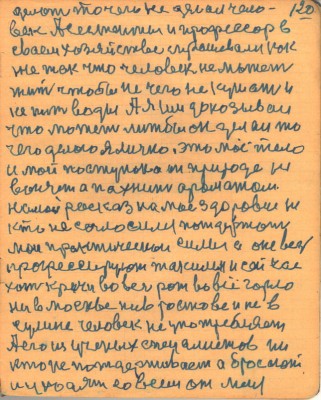 делают то чего не делал чело-
век Ассистенты и профессор в
своем хозяйстве спрашевали как
же так что человек не может
жить чтобы не чего не кушать и
не пит воды А я им доказывал
что может лишбы он делал то
чего делаю я лично. Это мое тело
и мой поступок от природе не
воняет а пахнит ароматом
На мой расказ на мое здоровие не
кто не согласился потдержат
мои практически силы а оне ведь
прогрессируют такими и сейчас
хоть кричи во весь рот во всё горло
ни в Москве ни в Ростове и не в
Сумине человек не употребляет
А его из ученых специалистов ни
кто не потдерживает а бросают
и уходят совсем от мен